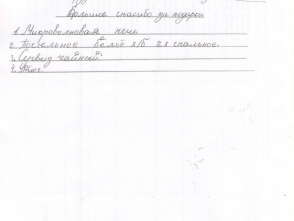 Большое спасибо за подарки
1. Микроволновая печь
2. Постельное бельё х/б 2х спальное.
3. Сервиз чайный.
4. Утюг.